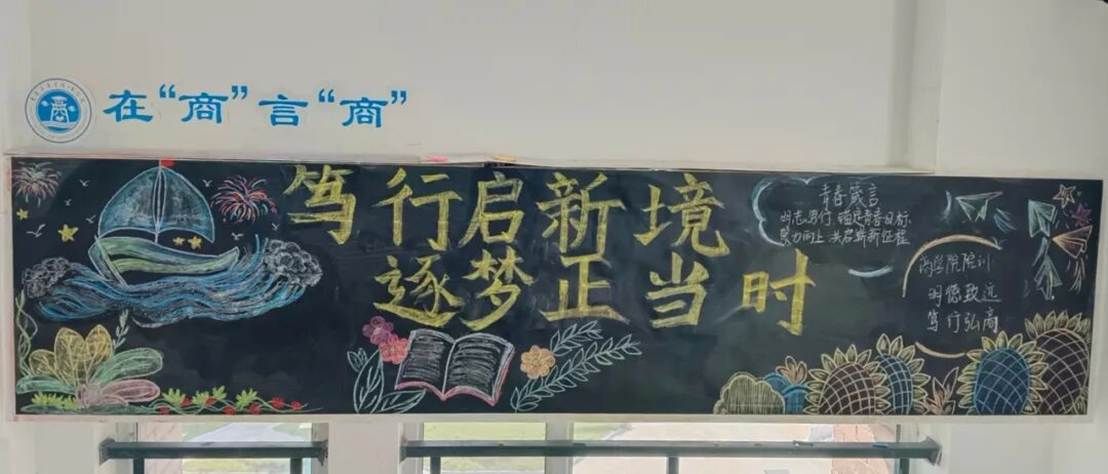 在“商”言“商”
笃行启新境
逐梦正当时
青春箴言
明志笃行 锚定青春目标
聚力向上 共启崭新征程
商学院院训
明德致远
笃行弘商